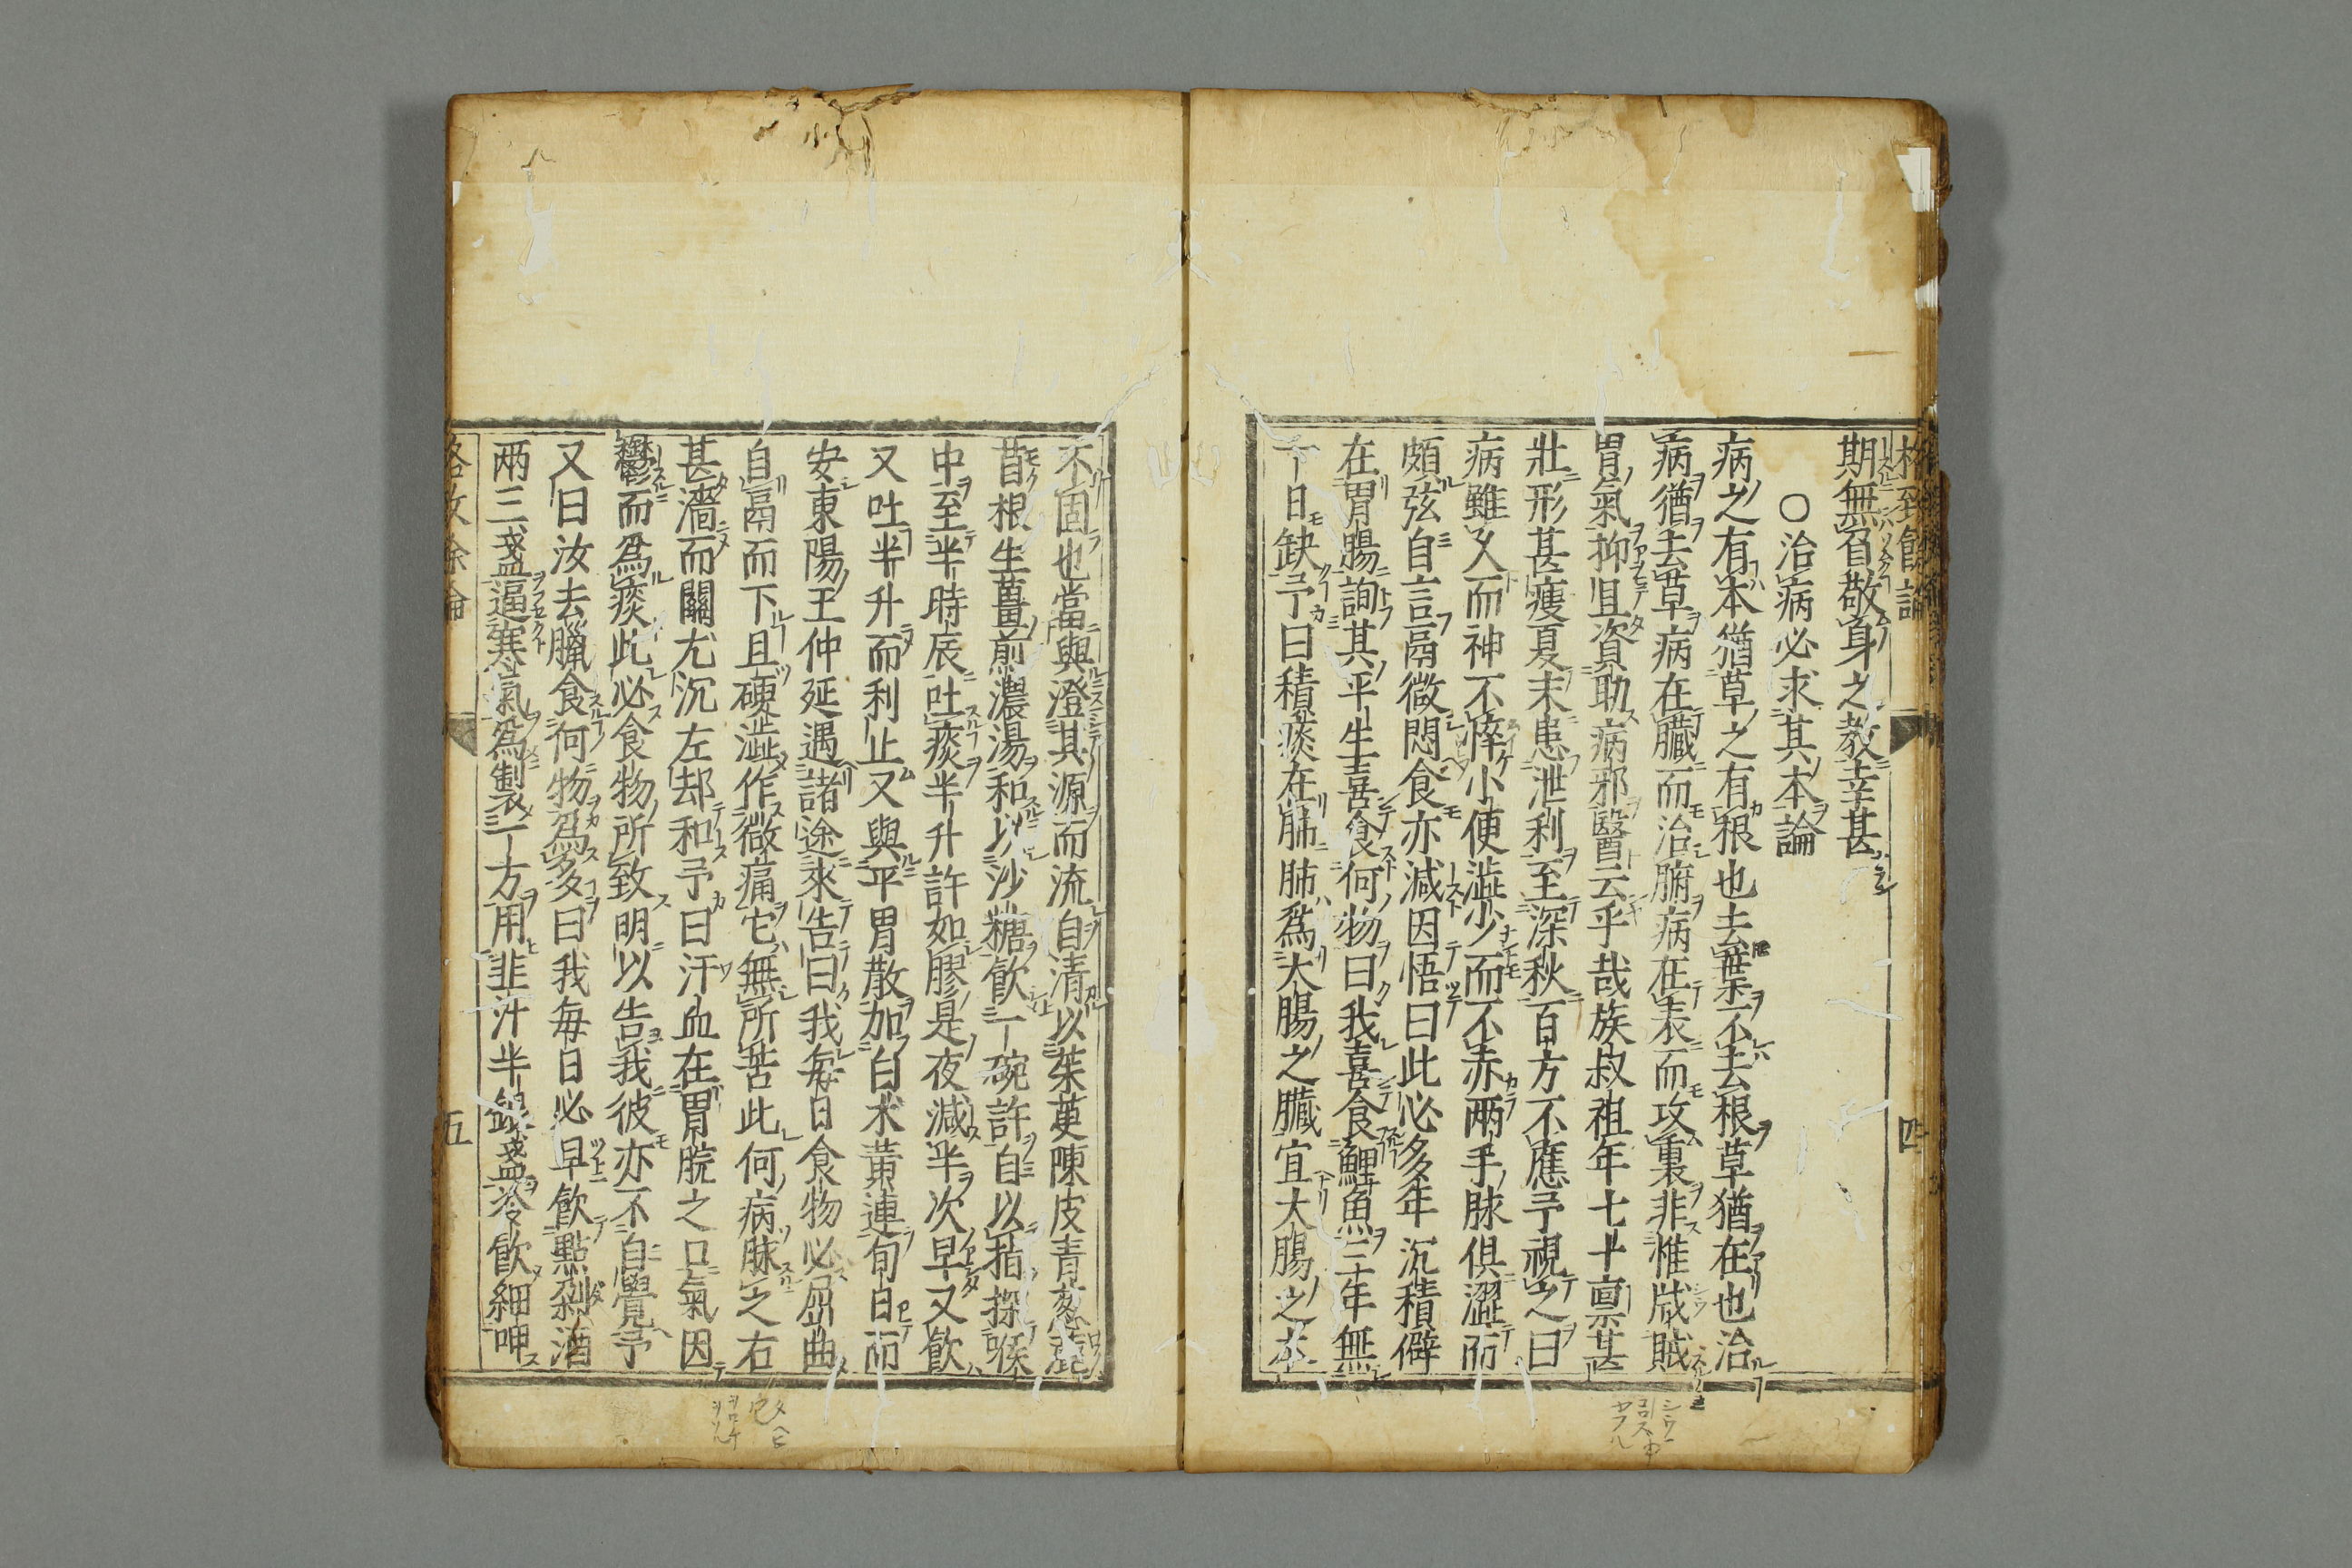 格致餘論
四
期無負敬身之教幸甚
○治病必求其本論
病之有本猶草之有根也去葉不去根草猶在也治
病猶去草病在臟而治腑病在表而攻裏非惟戕賊
胃氣抑且資助病邪醫云乎哉族叔祖年七十禀甚
壯形甚瘦夏末患泄利至深秋百方不應予視之曰
病雖久而神不悴小便澁少而不赤兩手脉俱澀而
頗弦自言鬲微悶食亦減因悟曰此必多年沉積僻
在胃腸詢其平生喜食何物曰我喜食鯉魚三年無
一日缺予曰積痰在肺肺爲大腸之臟宜大腸之本
不固也當與澄其源而流自清以茱萸陳皮青葱
苜根生薑煎濃湯和以沙糖飲一碗許自以指探喉
中至半時辰吐痰半升許如膠是夜減半次早又飲
又吐半升而利止又與平胃散加白朮黄連旬日而
安東陽王仲延遇諸途來告曰我每日食物必屈曲
自鬲而下且硬澁作微痛它無所苦此何病脉之右
甚濇而關尤沉左却和予曰汙血在胃脘之口氣因
鬱而爲痰此必食物所致明以告我彼亦不自覺予
又曰汝去臘食何物爲多曰我每日必早飲點剁酒
兩三盞逼寒氣爲製一方用韭汁半銀盞冷飲細呷
格致余論
五